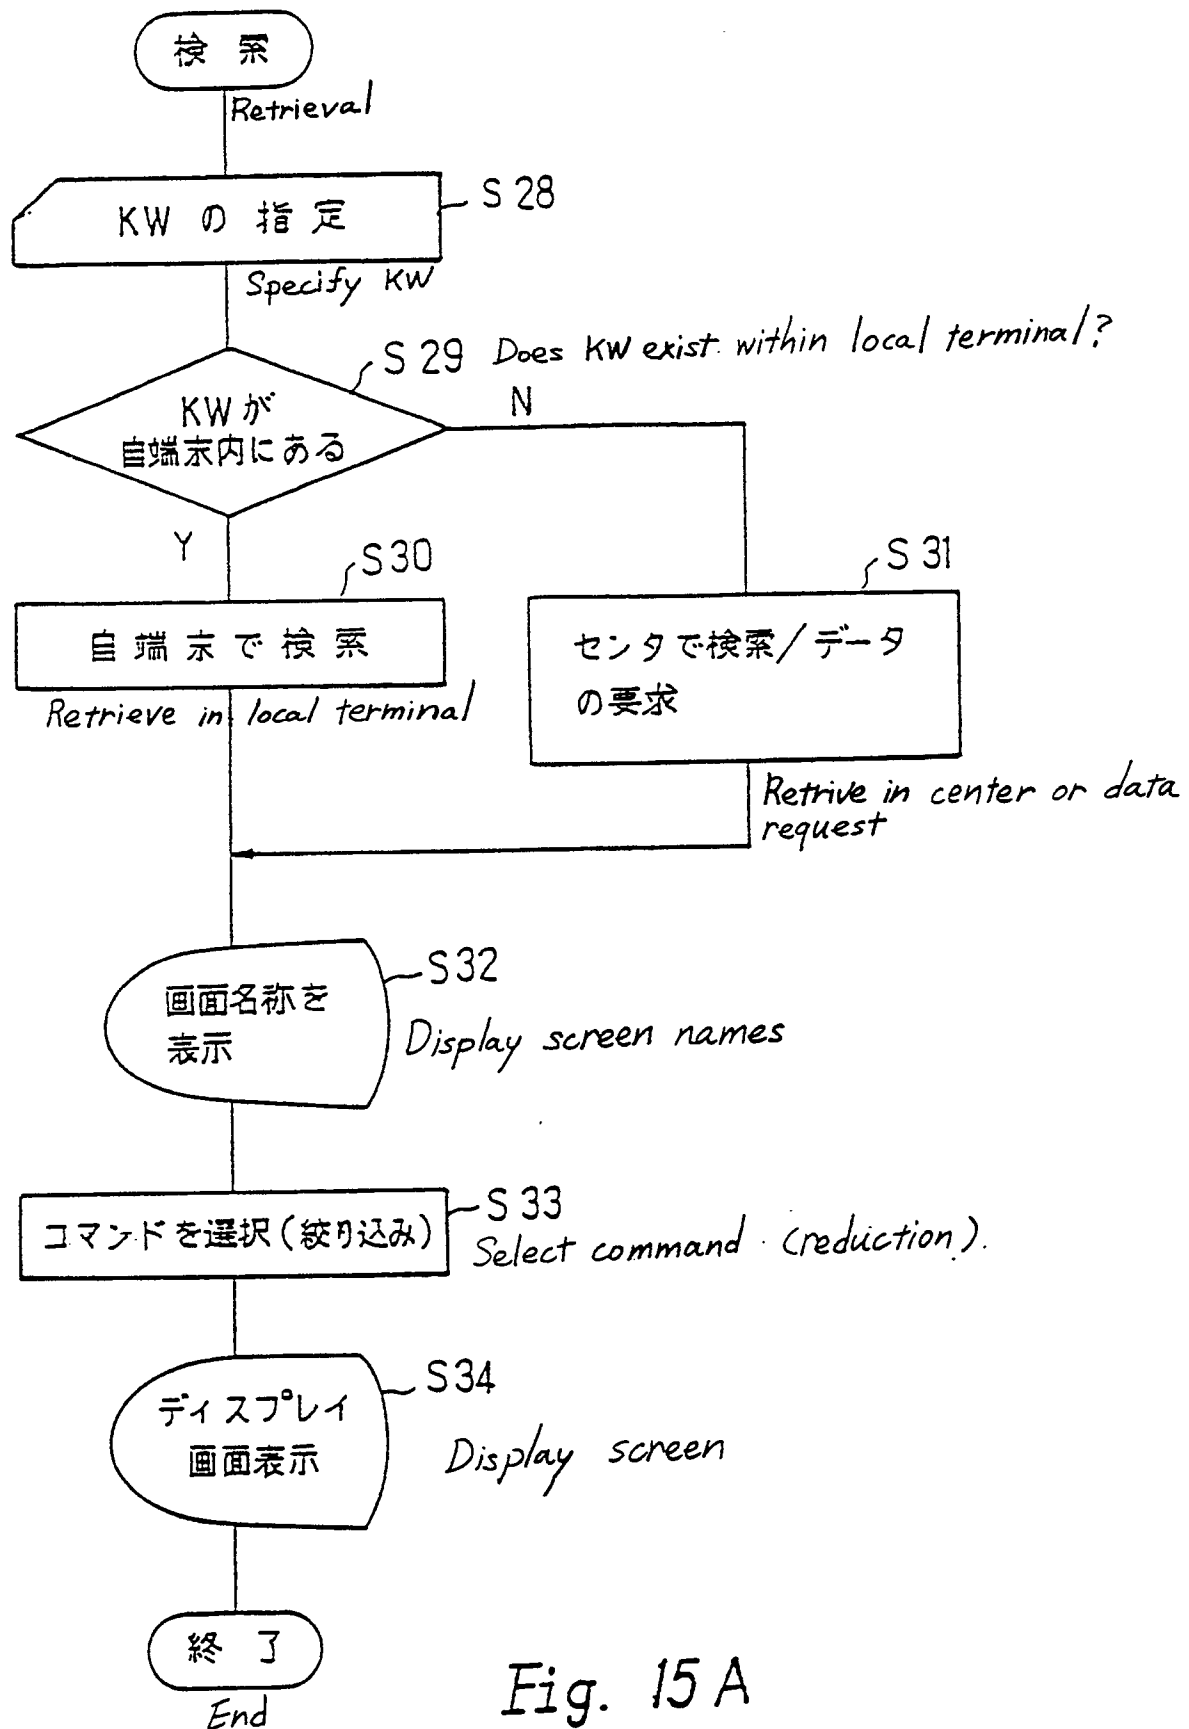 検索
Retrieval
KWの指定
S28
Specify KW
S29 Does KW exist within local terminal?
KWが
自端末内にある
N
Y
S30
S31
自端末で検索
センタで検索/データ
の要求
Retrieve in local terminal
Retrive in center or data
request
S32
画面名称を
表示
Display screen names
S33
コマンドを選択(絞り込み)
Select command (reduction).
S34
ディスプレイ
画面表示
Display screen
終了
End
Fig. 15A